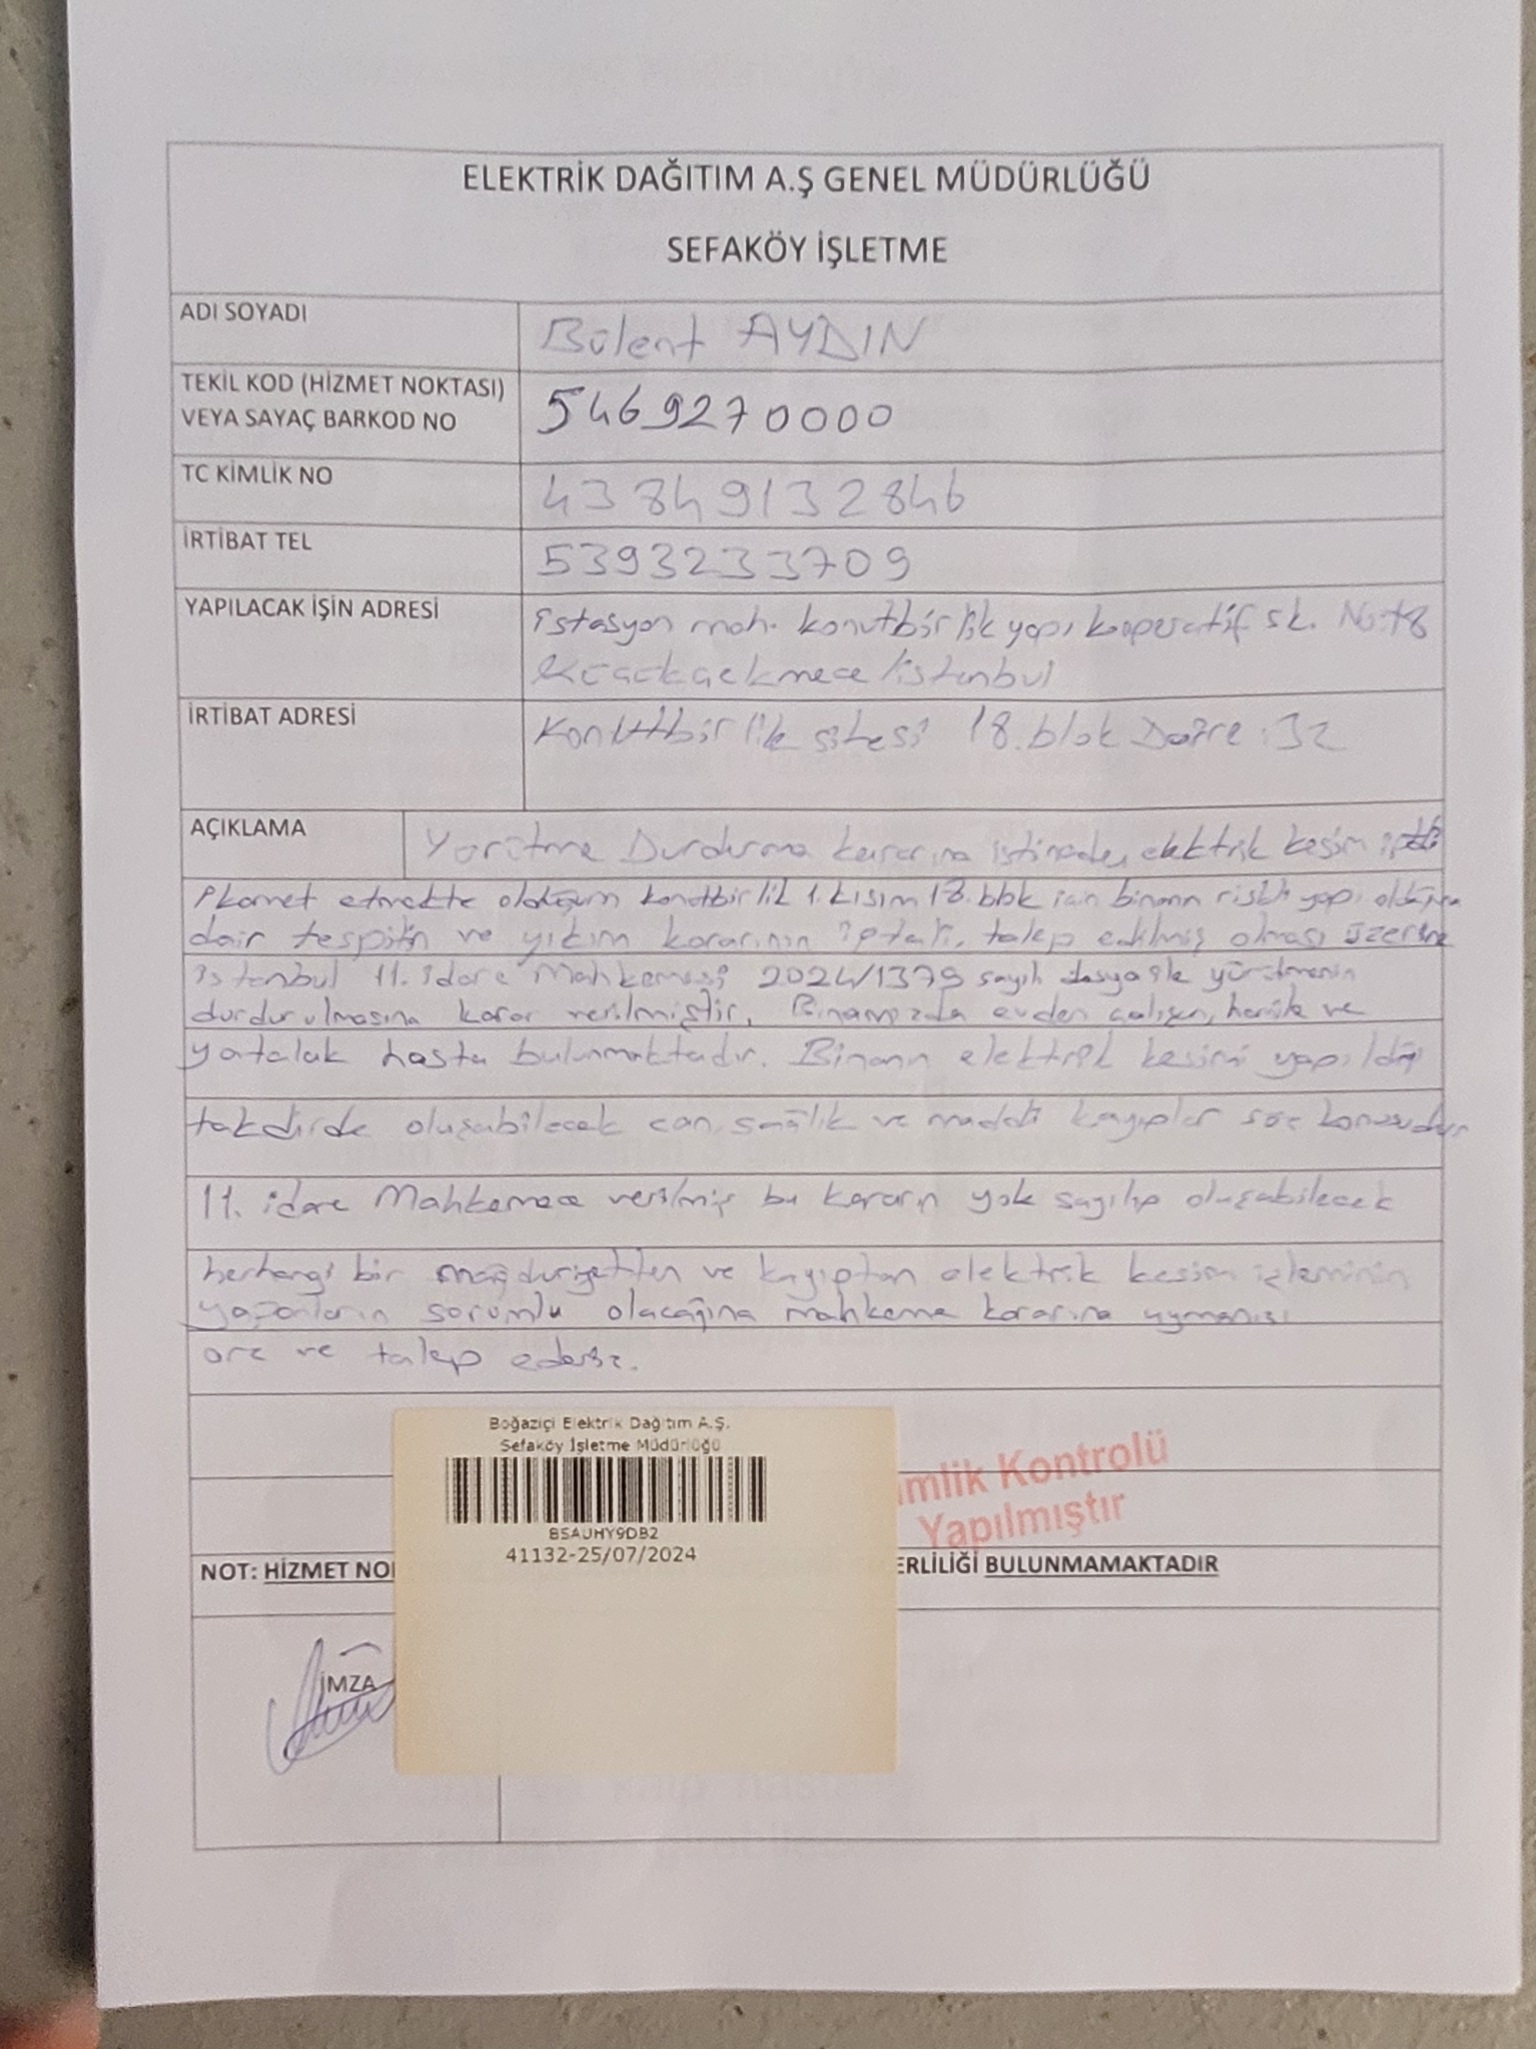 ELEKTRİK DAĞITIM A.Ş GENEL MÜDÜRLÜĞÜ
SEFAKÖY İŞLETME
ADI SOYADI
Bülent AYDIN
TEKİL KOD (HİZMET NOKTASI)
VEYA SAYAÇ BARKOD NO
5469270000
TC KİMLİK NO
43849132846
İRTİBAT TEL
5393233709
YAPILACAK İŞİN ADRESİ
istasyon mah. konutbirlik yapı kooperatif sk. No:
Küçükçekmece/istanbul
İRTİBAT ADRESİ
Konutbirlik sitesi 18.blok Daire:32
AÇIKLAMA
Yürütme Durdurma kararına istinaden elektrik kesim iptali
ikamet etmekte olduğum konutbirlik 1.kısım 18.blok için binanın riskli yapı olduğuna
dair tespitin ve yıkım kararının iptali, talep edilmiş olması üzerine
istanbul 11. idare Mahkemesi 2024/1379 sayılı dosya ile yürütmenin
durdurulmasına karar verilmiştir. Binamızda evden çalışan, ve
yatalak hasta bulunmaktadır. Binanın elektrik kesimi yapıldığı
takdirde oluşabilecek can, sağlık ve maddi kayıplar söz konusudur
11. idare Mahkemece verilmiş bu kararın yok sayılıp oluşabilecek
herhangi bir mağduriyetten ve kayıptan elektrik kesim işleminin
yapanların sorumlu olacağına mahkeme kararına uymanızı
arz ve talep ederiz.
Boğaziçi Elektrik Dağıtım A.Ş.
Sefaköy İşletme Müdürlüğü
BSAUHY9DB2
41132-25/07/2024
imlik Kontrolü
Yapılmıştır
NOT: HİZMET NO ERLİLİĞİ BULUNMAMAKTADIR
İMZA